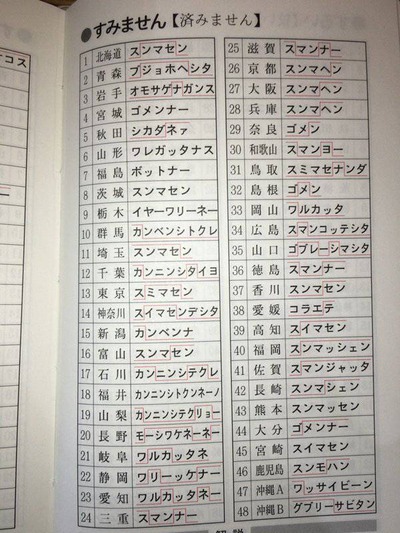 ●すみません【済みません】
1 北海道 スンマセン
2 青森 ブジョホヘシタ
3 岩手 オモサゲナガンス
4 宮城 ゴメンナー
5 秋田 シカダネァ
6 山形 ワレガッタナス
7 福島 ボットナー
8 茨城 スンマセン
9 栃木 イヤーワリーネー
10 群馬 カンベンシトクレ
11 埼玉 スンマセン
12 千葉 カンニンシタイヨ
13 東京 スミマセン
14 神奈川 スイマセンデシタ
15 新潟 カンベンナ
16 富山 スンマセン
17 石川 カンニンシテクレ
18 福井 カンニンシトクンネーノ
19 山梨 カンニンシテクリョー
20 長野 モーシワケネーネー
21 岐阜 ワルカッタネ
22 静岡 ワリーッケナー
23 愛知 ワルカッタネー
24 三重 スマンナー
25 滋賀 スマンナー
26 京都 スマンヘン
27 大阪 スマンヘン
28 兵庫 スマンヘン
29 奈良 ゴメン
30 和歌山 スマンヨー
31 鳥取 スミマセナンダ
32 島根 ゴメン
33 岡山 ワルカッタ
34 広島 スマンコッテシタ
35 山口 ゴブレーシマシタ
36 徳島 スマンナー
37 香川 スンマセン
38 愛媛 コラエテ
39 高知 スイマセン
40 福岡 スンマッシェン
41 佐賀 スマンジャッタ
42 長崎 スンマシェン
43 熊本 スンマッセン
44 大分 ゴメンナー
45 宮崎 スイマセン
46 鹿児島 スンモハン
47 沖縄A ワッサイビーン
48 沖縄B グブリーサビタン